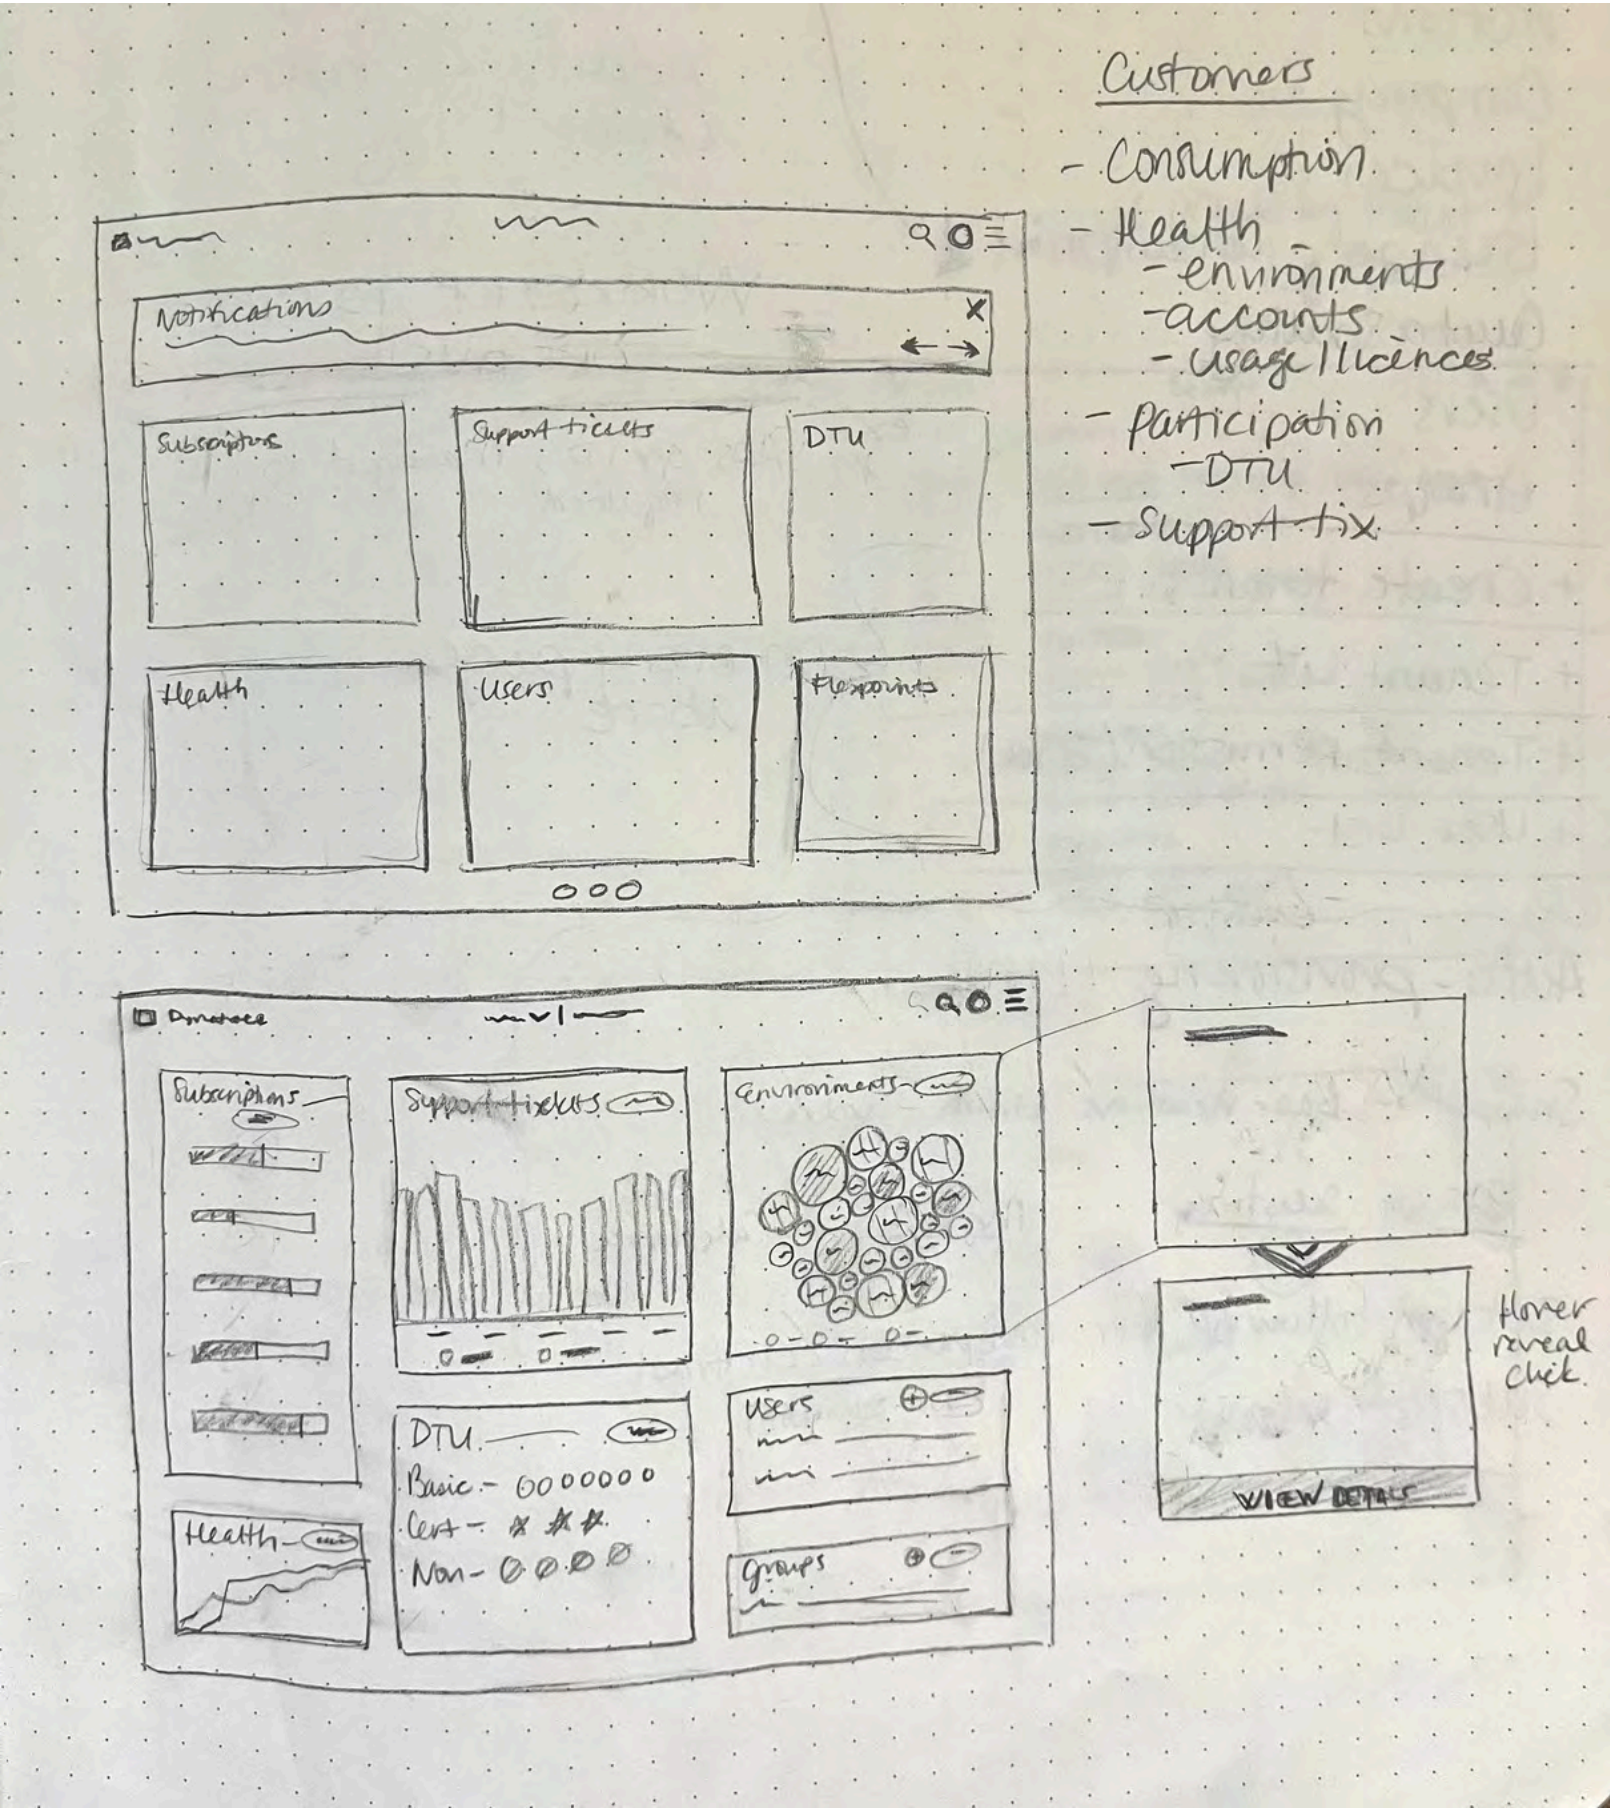 Customers
- Consumption
- Health
- environments
- accounts
- usage/licences
- Participation
- DTU
- Support tix
Notifications
Subscriptions
Support tickets
DTU
Health
Users
Flexpoints
Subscriptions
Support tixkets
Environments
Health
DTU
Basic -
Cert -
Non -
Users
Groups
Hover
reveal
Click.
VIEW DETAILS